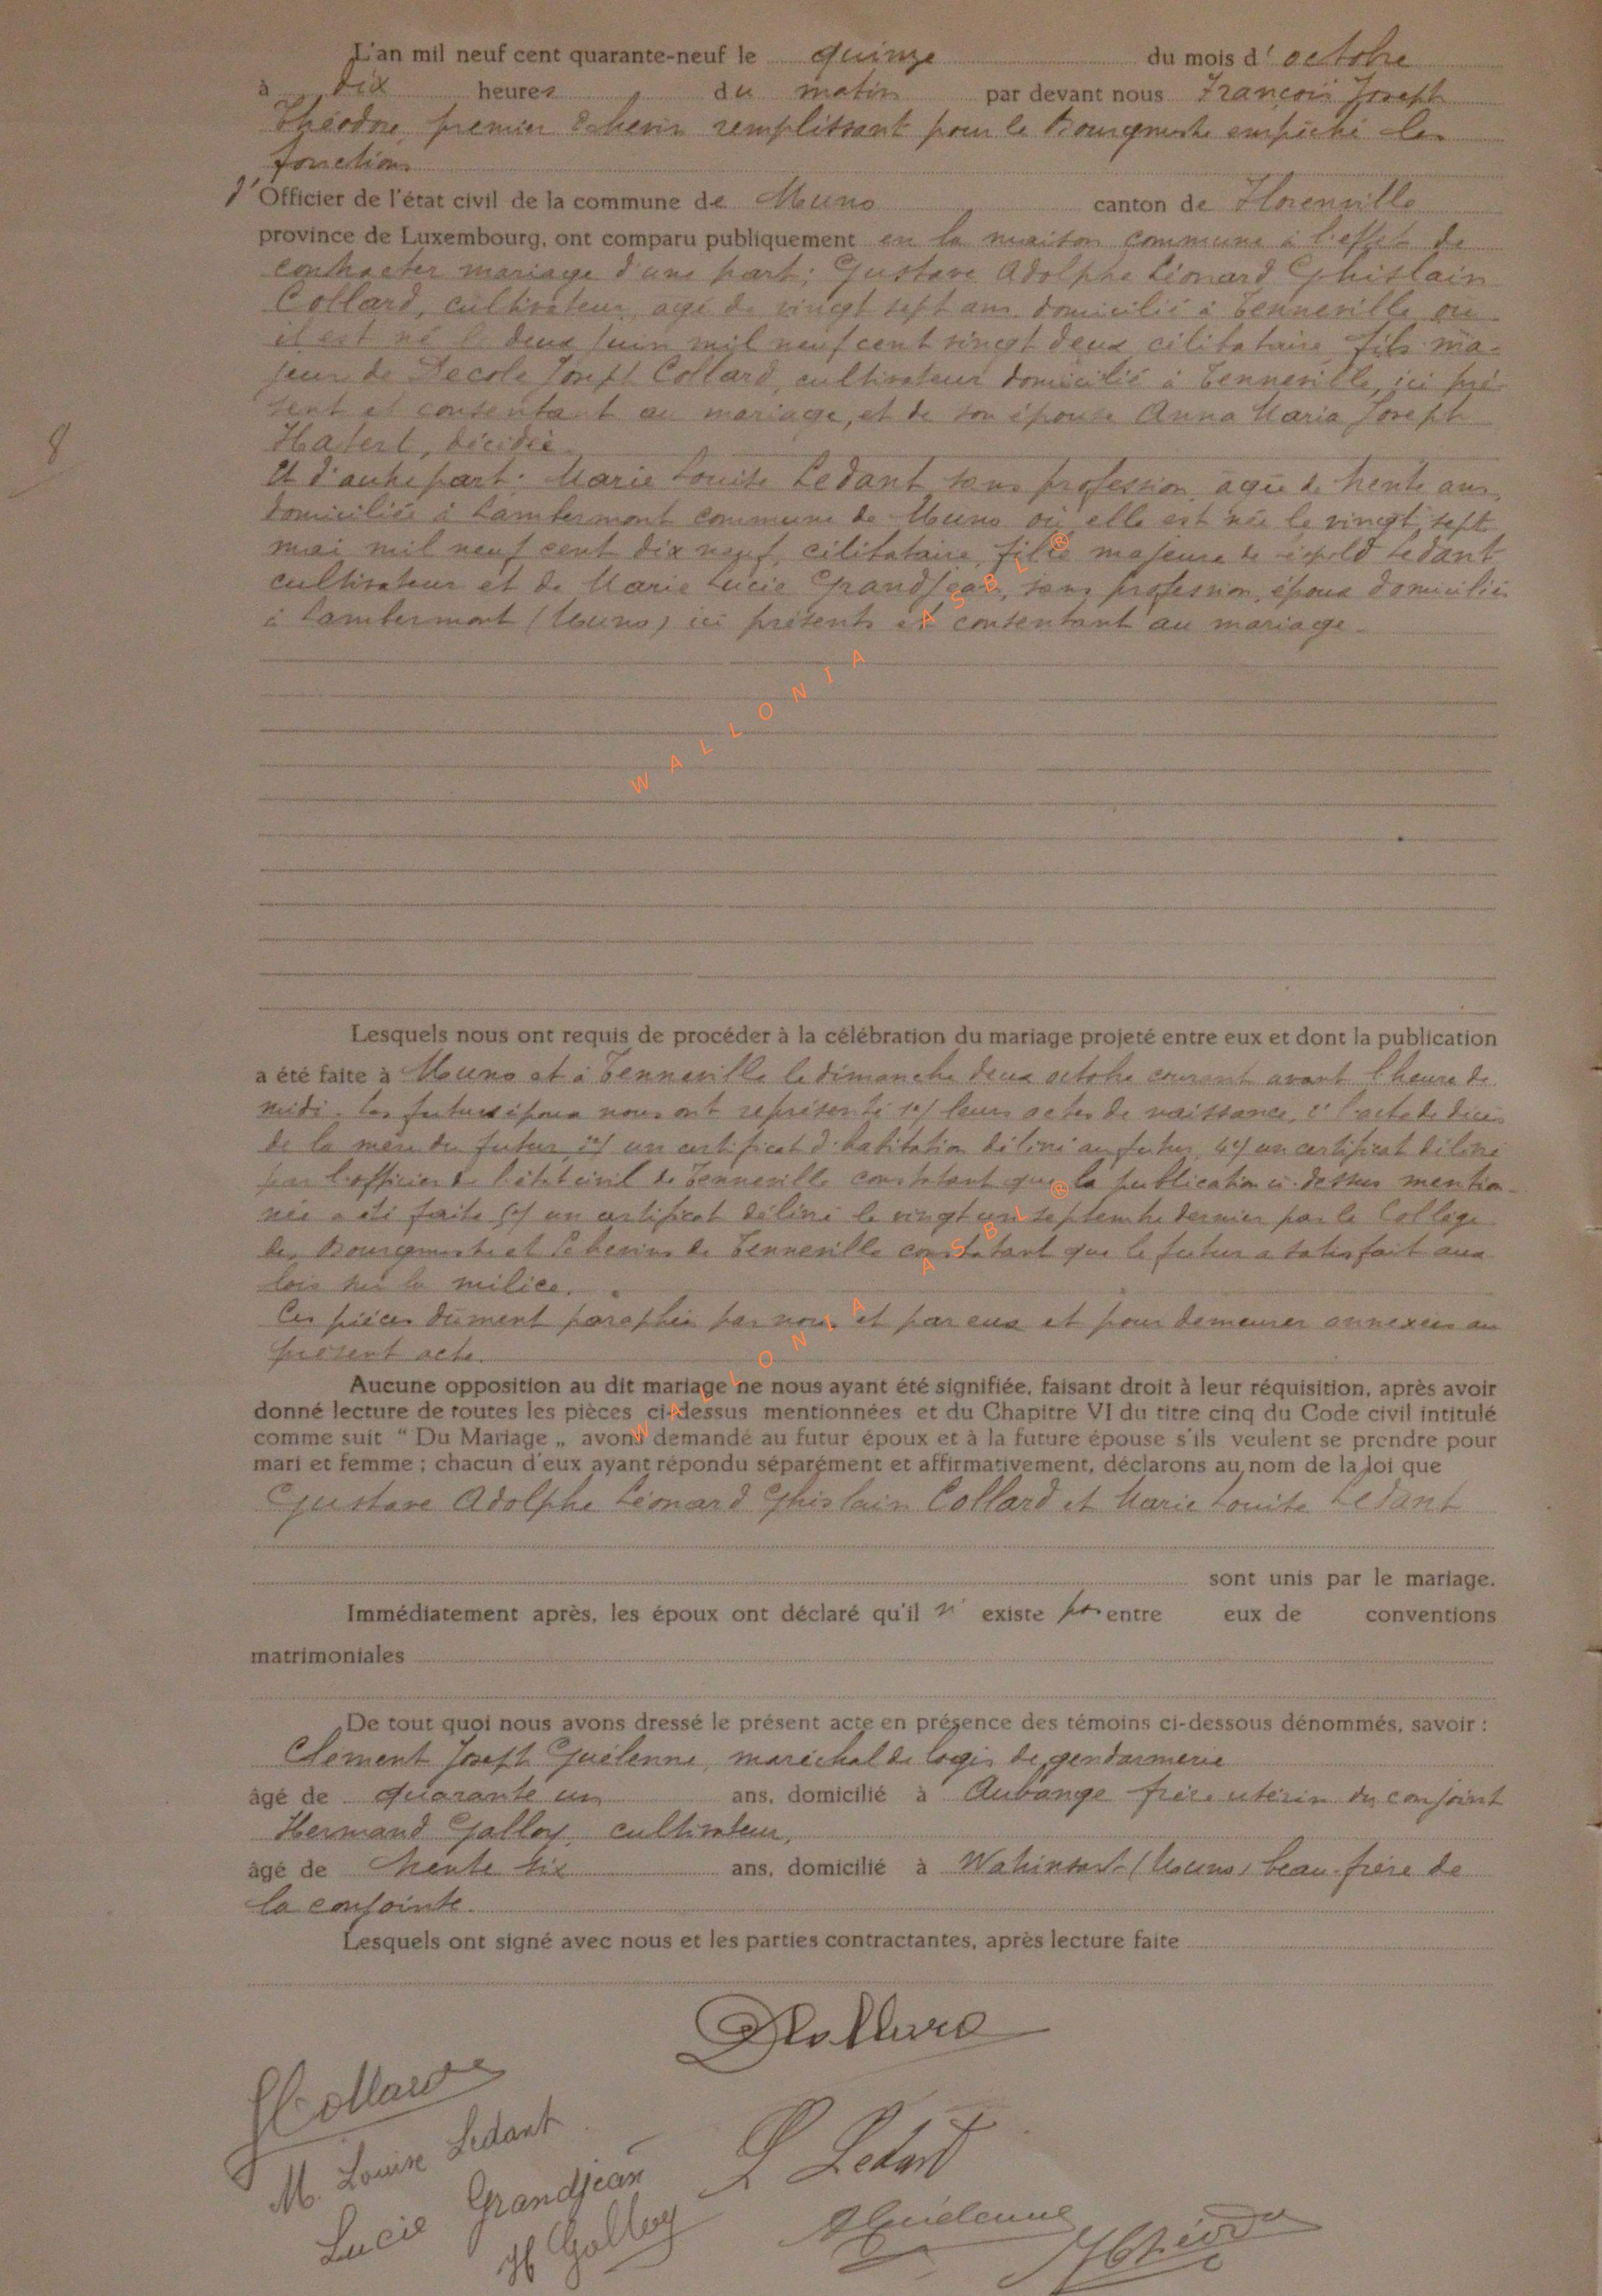 L'an mil neuf cent quarante-neuf le quinze du mois d'octobre
à dix heures du matin par devant nous François Joseph
Théodore, premier Echevin remplissant pour le Bourgmestre empêché les
fonctions
d'Officier de l'état civil de la commune de Muno canton de Florenville
province de Luxembourg, ont comparu publiquement en la maison commune à l'effet de
contracter mariage d'une part: Gustave Adolphe Léonard Ghislain
Collard, cultivateur, agé de vingt sept ans domicilié à Tenneville où
il est né le deux juin mil neuf cent vingt deux, célibataire, fils ma-
jeur de Joseph Collard, cultivateur domicilié à Tenneville, ici pré-
sent et consentant au mariage, et de son épouse Anna Maria Joseph
décédée.
8
Et d'autre part: Marie Louise Ledant sans profession, agée de trente ans,
domiciliée à Lambermont commune de Muno où elle est née le vingt sept
mai mil neuf cent dix neuf, célibataire, fille majeure de Léopold Ledant
cultivateur et de Marie Lucie Grandjean, sans profession, époux domiciliés
à Lambermont (Muno) ici présents et consentant au mariage.
WALLONIA ASBL ®
Lesquels nous ont requis de procéder à la célébration du mariage projeté entre eux et dont la publication
a été faite à Muno et à Tenneville le dimanche deux octobre courant avant l'heure de
midi. Les futurs époux nous ont représenté 1°/ leurs actes de naissance, 2° l'acte de décès
de la mère du futur 3°/ un certificat d'habitation délivré au futur, 4°/ un certificat délivré
par l'officier de l'état civil de Tenneville constatant que la publication ci-dessus mention-
née a été faite 5°/ un certificat délivré le vingt un septembre dernier par le Collège
des Bourgmestre et Echevins de Tenneville constatant que le futur a satisfait aux
lois sur la milice.
Ces pièces dûment paraphées par nous et par eux et pour demeurer annexées au
présent acte.
WALLONIA ASBL ®
Aucune opposition au dit mariage ne nous ayant été signifiée, faisant droit à leur réquisition, après avoir
donné lecture de toutes les pièces ci-dessus mentionnées et du Chapitre VI du titre cinq du Code civil intitulé
comme suit " Du Mariage „ avons demandé au futur époux et à la future épouse s'ils veulent se prendre pour
mari et femme ; chacun d'eux ayant répondu séparément et affirmativement, déclarons au nom de la loi que
Gustave Adolphe Léonard Ghislain Collard et Marie Louise Ledant
sont unis par le mariage.
Immédiatement après, les époux ont déclaré qu'il n' existe pas entre eux de conventions
matrimoniales
De tout quoi nous avons dressé le présent acte en présence des témoins ci-dessous dénommés, savoir :
Clement Joseph Guélenne, maréchal de logis de gendarmerie
âgé de quarante un ans, domicilié à Aubange frère utérin du conjoint
Hermand Galloy, cultivateur,
âgé de trente six ans, domicilié à (Muno) beau-frère de
la conjointe.
Lesquels ont signé avec nous et les parties contractantes, après lecture faite
Collard
Collard
M. Louise Ledant
L Ledant
Lucie Grandjean
H Galloy
Guélenne